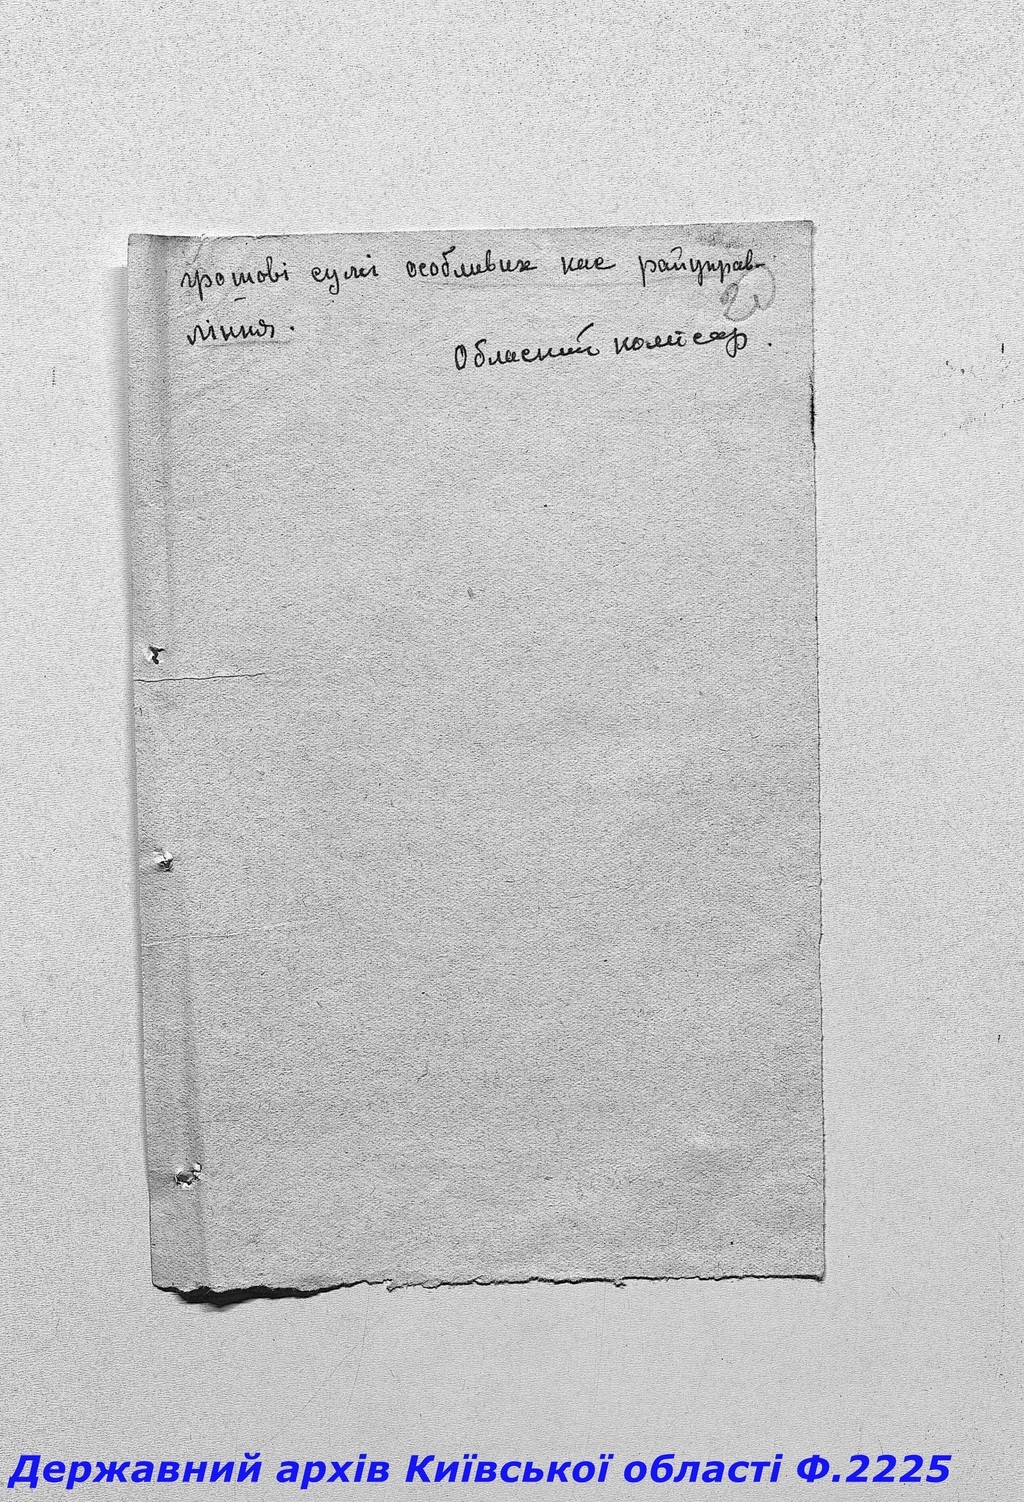 грошові сумі особливих кас райуправ-
ління.
Обласний комісар.
Державний архів Київської області Ф.2225